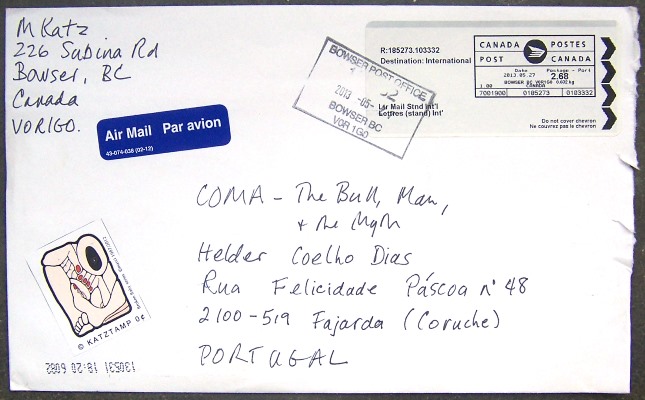 M Katz
226 Subina Rd
Bowser, BC
Canada
V0R1G0.
Air Mail Par avion
43-074-038 (02-12)
R:185273.103332
Destination: International
Ltr Mail Stnd Int'l
Lettres (stand) Int'
CANADA POSTES
POST CANADA
Date
2013.05.27
2.68
BOWSER BC V0R1G0
CANADA
7001900 0185273 0103332
Do not cover chevron
Ne couvrez pas le chevron
BOWSER POST OFFICE
2013 -05-
BOWSER BC
V0R 1G0
COMA - The Bull, Man,
+ the Myth
Helder Coelho Dias
Rua Felicidade Páscoa nº 48
2100-519 Fajarda (Coruche)
PORTUGAL
© KATZTAMP 0¢
130531 18:20 6082